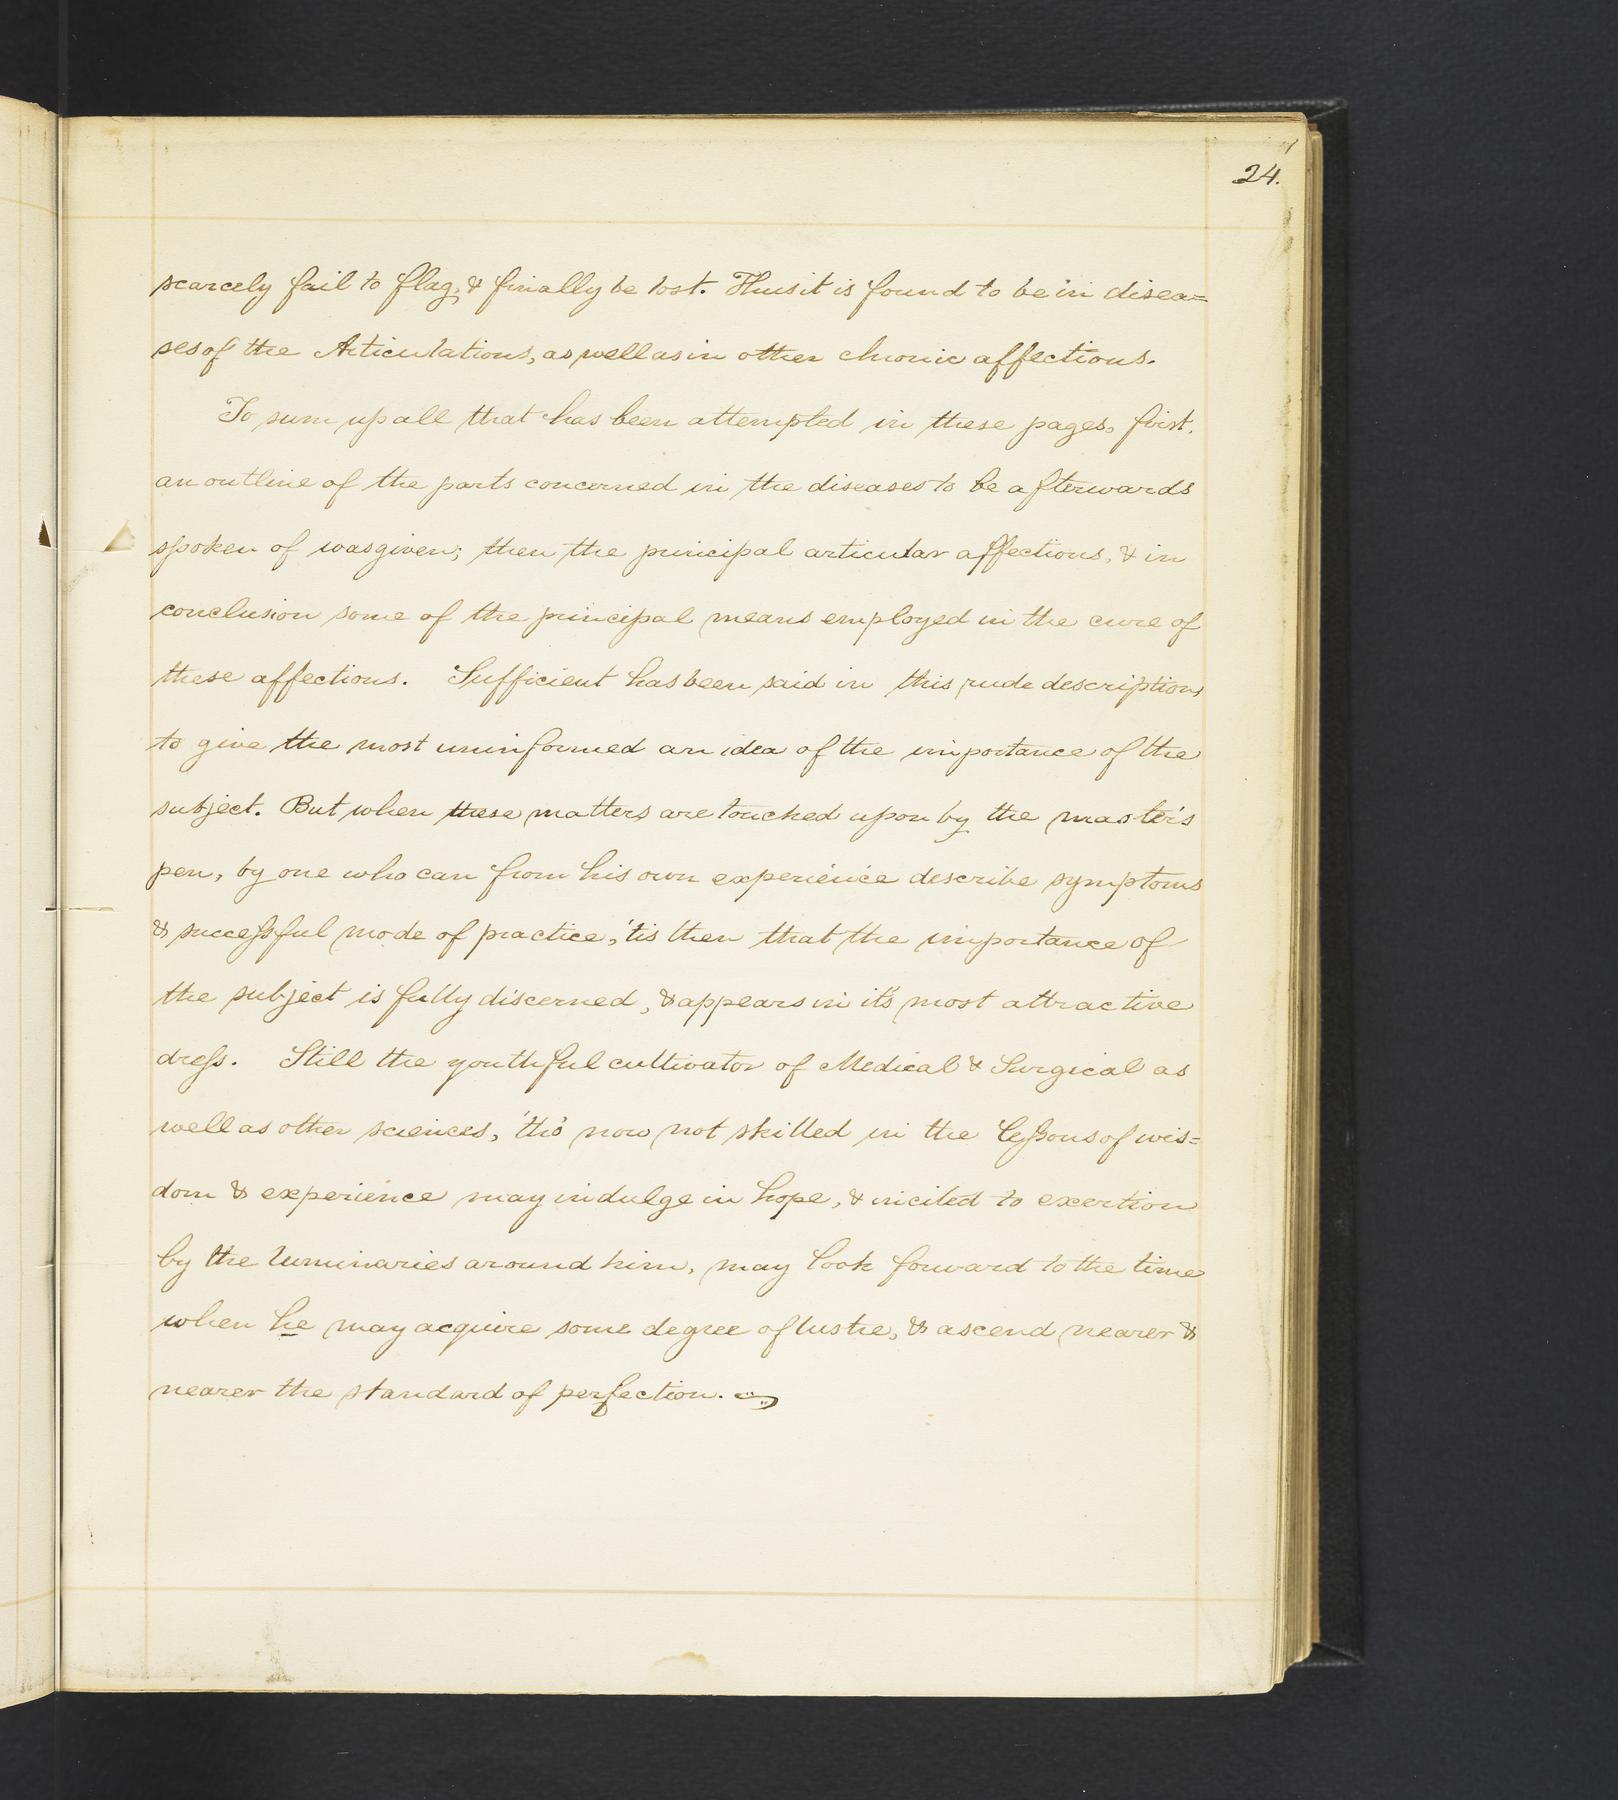 24.
scarcely fail to flag, & finally be lost. Thus it is found to be in disea=
ses of the Articulations, as well as in other chronic affections.
To sum up all that has been attempted in these pages, first,
an outline of the parts concerned in the diseases to be afterwards
spoken of was given; then the principal articular affections, & in
conclusion some of the principal means employed in the cure of
these affections. Sufficient has been said in this rude description
to give the most uninformed an idea of the importance of the
subject. But when these matters are touched upon by the master's
pen, by one who can from his own experience describe symptoms
& successful mode of practice, 'tis then that the importance of
the subject is fully discerned, & appears in it's most attractive
dress. Still the youthful cultivator of Medical & Surgical as
well as other sciences, 'tho' now not skilled in the lessons of wis=
dom & experience may indulge in hope, & incited to exertion
by the luminaries around him, may look forward to the time
when he may acquire some degree of lustre, & ascend nearer &
nearer the standard of perfection.